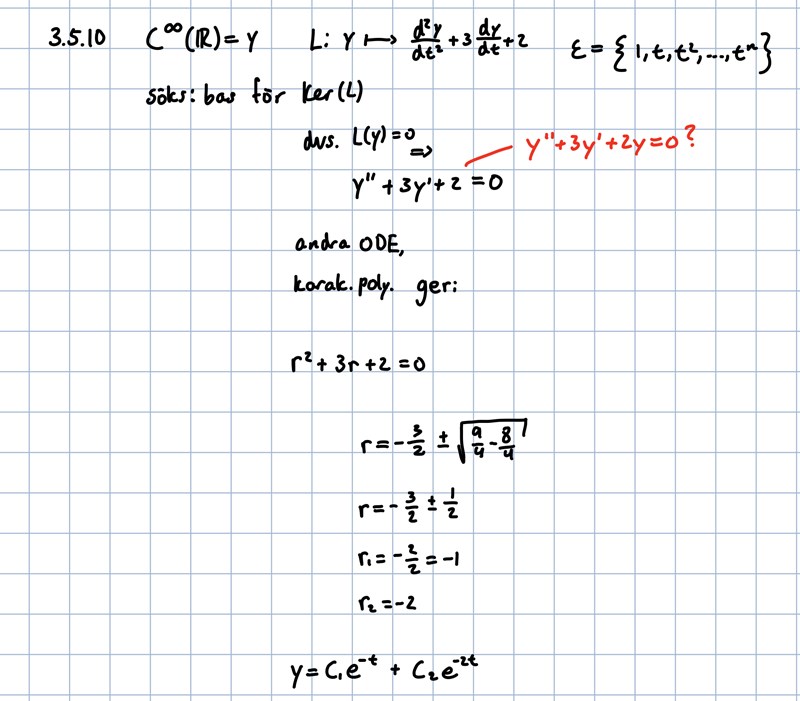 3.5.10 C^∞(ℝ) = Y L: Y ↦ d²y/dt² + 3 dy/dt + 2 ε = {1, t, t², ..., tⁿ}
söks: bas för Ker(L)
dvs. L(y) = 0 ⇒
y'' + 3y' + 2y = 0?
y'' + 3y' + 2 = 0
andra ODE,
karak. poly. ger:
r² + 3r + 2 = 0
r = -3/2 ± √(9/4 - 8/4)
r = -3/2 ± 1/2
r₁ = -2/2 = -1
r₂ = -2
y = C₁e^-t + C₂e^-2t